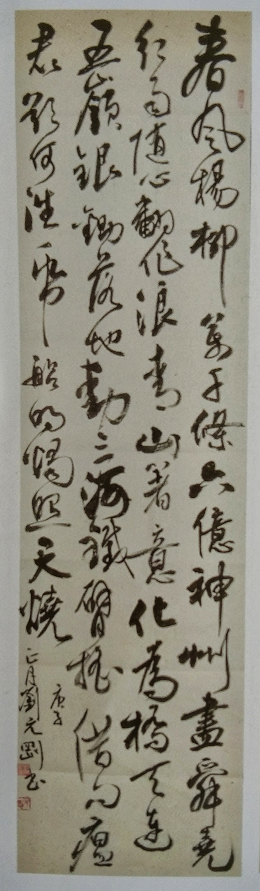 春風楊柳萬千條六億神州盡舜堯
紅雨隨心翻作浪青山着意化為橋天連
五嶺銀鋤落地動三河鐵臂搖借問瘟
君欲何往紙船明燭照天燒
庚子
正月劉元剛书